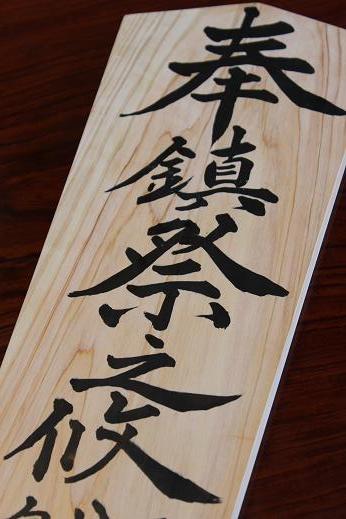 奉鎮祭之攸